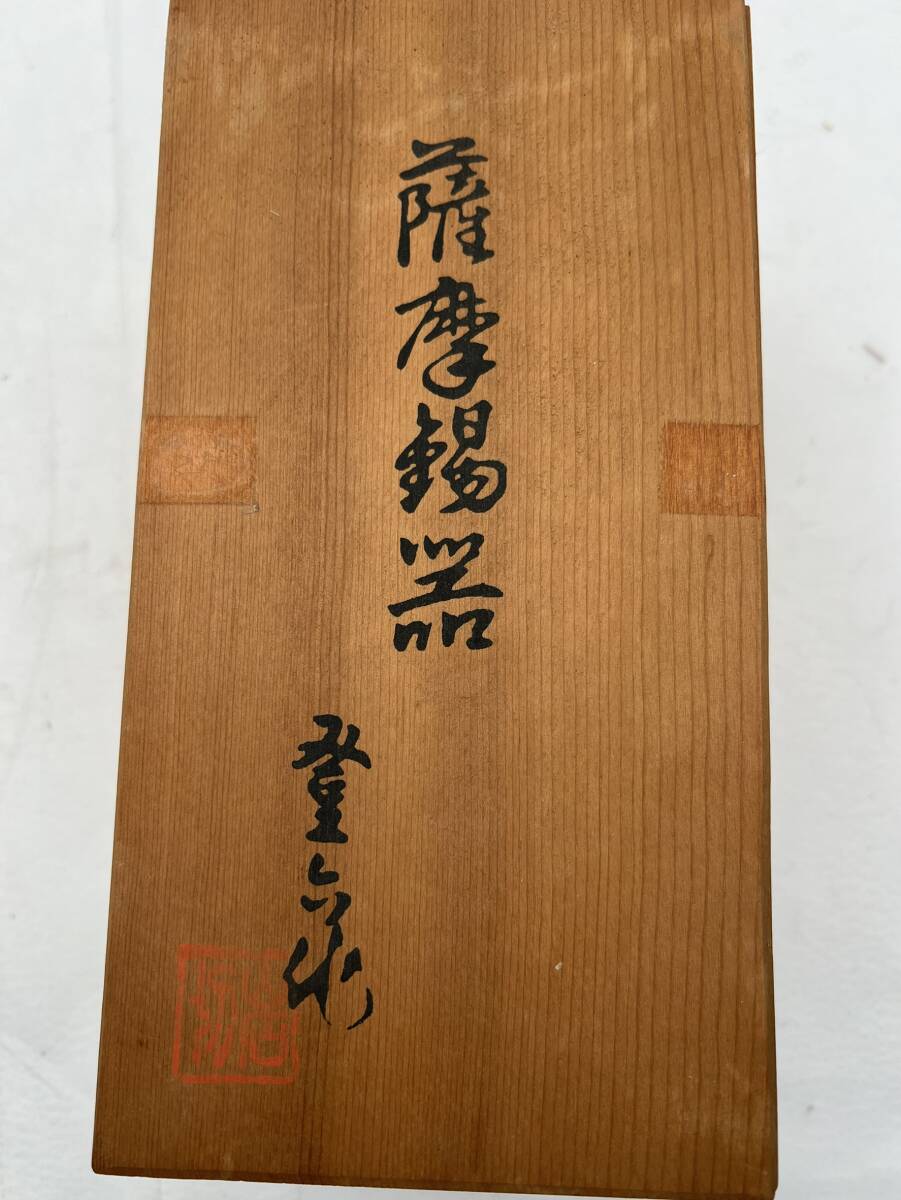 薩摩錫器
登六作